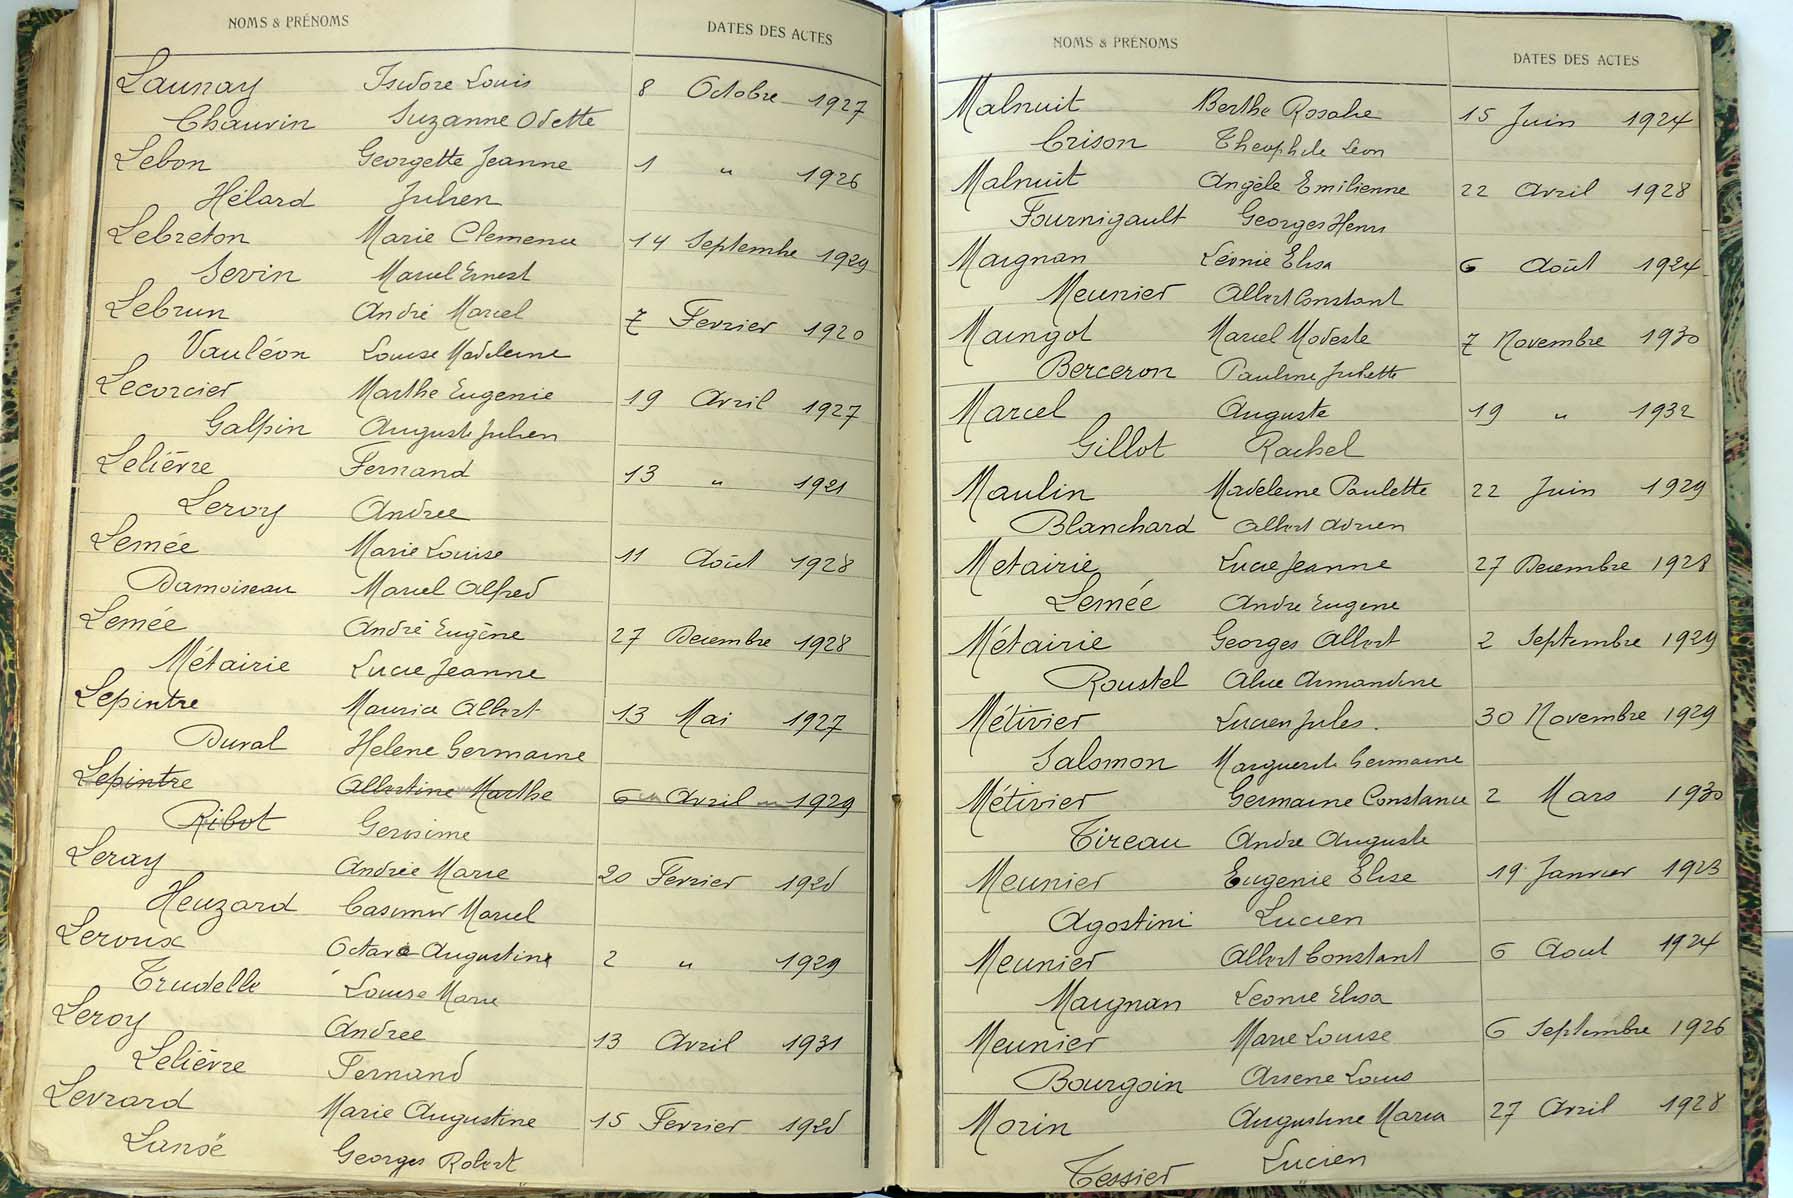 NOMS & PRÉNOMS DATES DES ACTES
Launay Isidore Louis 8 Octobre 1927
Chauvin Suzanne Odette
Lebon Georgette Jeanne 1 " 1926
Hélard Julien
Lebreton Marie Clemence 14 Septembre 1929
Sevin Marcel Ernest
Lebrun André Marcel 7 Fevrier 1920
Vauléon Louise Madeleine
Lecorcier Marthe Eugenie 19 Avril 1927
Galpin Auguste Julien
Lelièvre Fernand 13 " 1921
Leroy Andree
Lemée Marie Louise 11 Août 1928
Damoiseau Marcel Alfred
Lemée André Eugène 27 Decembre 1928
Métairie Lucie Jeanne
Lepintre Maurice Albert 13 Mai 1927
Duval Helene Germaine
Lepintre Albertine Marthe 6 Avril 1929
Ribot Gerosime
Leray Andrée Marie 20 Fevrier
Heuzard Casimir Marcel
Leroux Augustine 2 " 1929
Trudelle Louise Marie
Leroy Andree 13 Avril 1931
Lelièvre Fernand
Levrard Marie Augustine 15 Fevrier
Lansë Georges Robert
NOMS & PRÉNOMS DATES DES ACTES
Malnuit Berthe Rosalie 15 Juin 1924
Crison Theophile Leon
Malnuit Angèle Emilienne 22 Avril 1928
Fournigault Georges Henri
Maignan Léonie Elisa 6 Août 1924
Meunier Albert Constant
Maingot Marcel Modeste 7 Novembre 1930
Berceron Pauline Juliette
Marcel Auguste 19 " 1932
Gillot Rachel
Maulin Madeleine Paulette 22 Juin 1929
Blanchard Albert Adrien
Metairie Lucie Jeanne 27 Decembre 1928
Lemée Andre Eugene
Métairie Georges Albert 2 Septembre 1929
Roustel Alice Armandine
Métivier Lucien Jules. 30 Novembre 1929
Salomon Marguerite Germaine
Métivier Germaine Constance 2 Mars 1930
Tireau Andre Auguste
Meunier Eugenie Elise 19 Janvier 1923
Agostini Lucien
Meunier Albert Constant 6 Aout 1924
Maignan Leonie Elisa
Meunier Marie Louise 6 Septembre 1926
Bourgoin Arsene Louis
Morin Augustine Maria 27 Avril 1928
Tessier Lucien